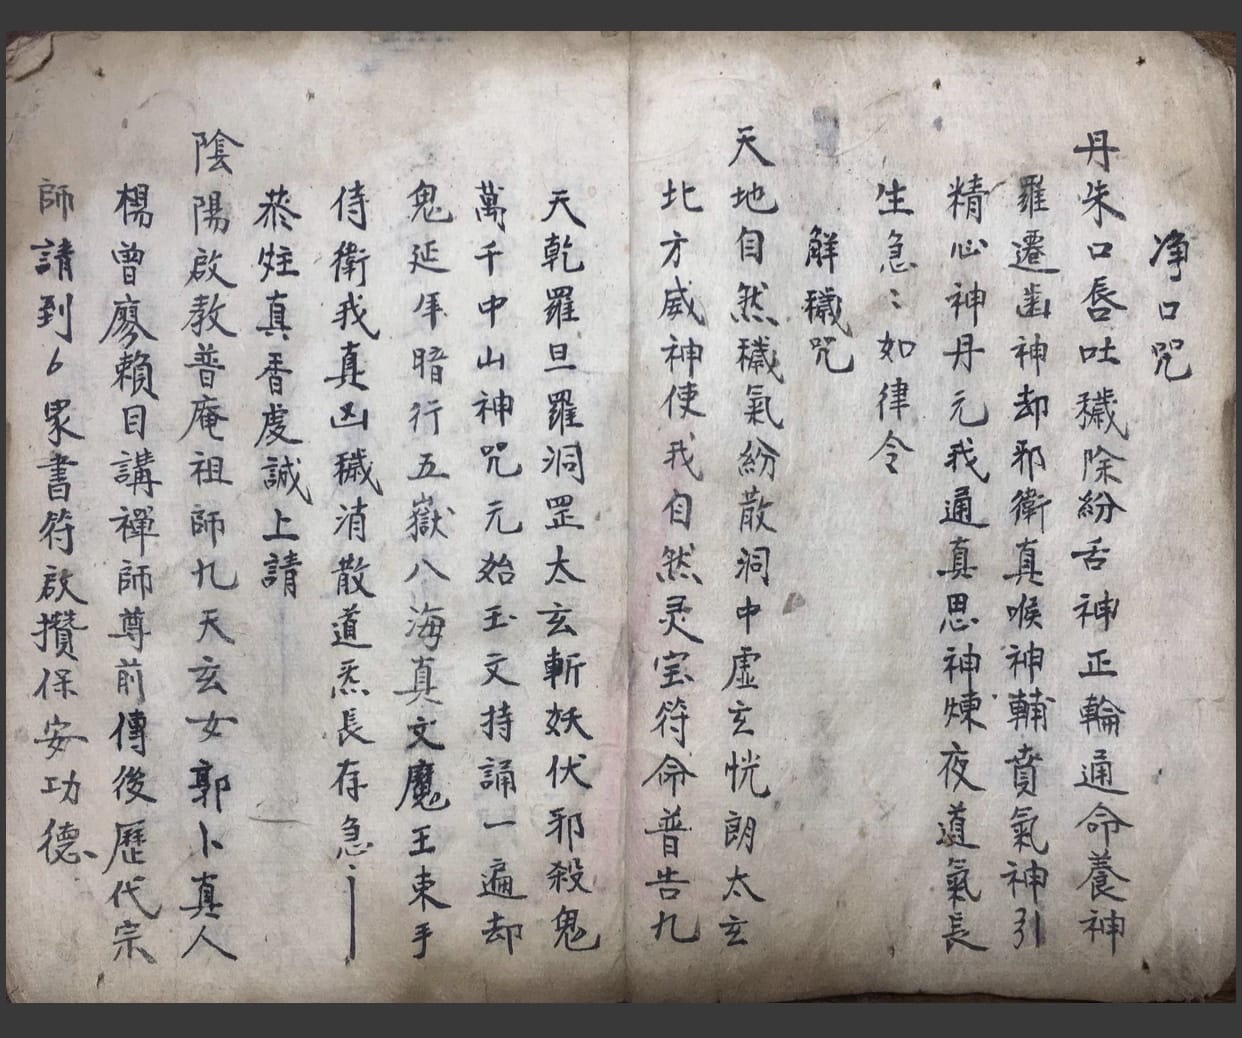 净口咒
丹朱口唇吐穢除紛舌神正輪通命養神
羅遷齒神却邪衛真喉神輔賁氣神引
精心神丹元我通真思神煉夜道氣長
生急〻如律令
解穢咒
天地自然穢氣紛散洞中虛玄恍朗太玄
北方威神使我自然灵宝符命普告九
天乾羅旦羅洞罡太玄斬妖伏邪殺鬼
萬千中山神咒元始玉文持誦一遍却
鬼延年暗行五嶽八海真文魔王束手
侍衛我真凶穢消散道炁長存急〻
恭炷真香虔誠上請
陰陽啟教普庵祖師九天玄女郭卜真人
楊曾廖賴目講禪師尊前傳後歷代宗
師請到 書符啟攢保安功德